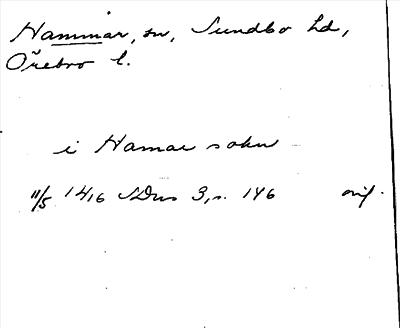 Hammar, sn, Sundbo hd,
Örebro l.
i Hamar sokn
11/5 1416 SDns 3, s. 146 orig.